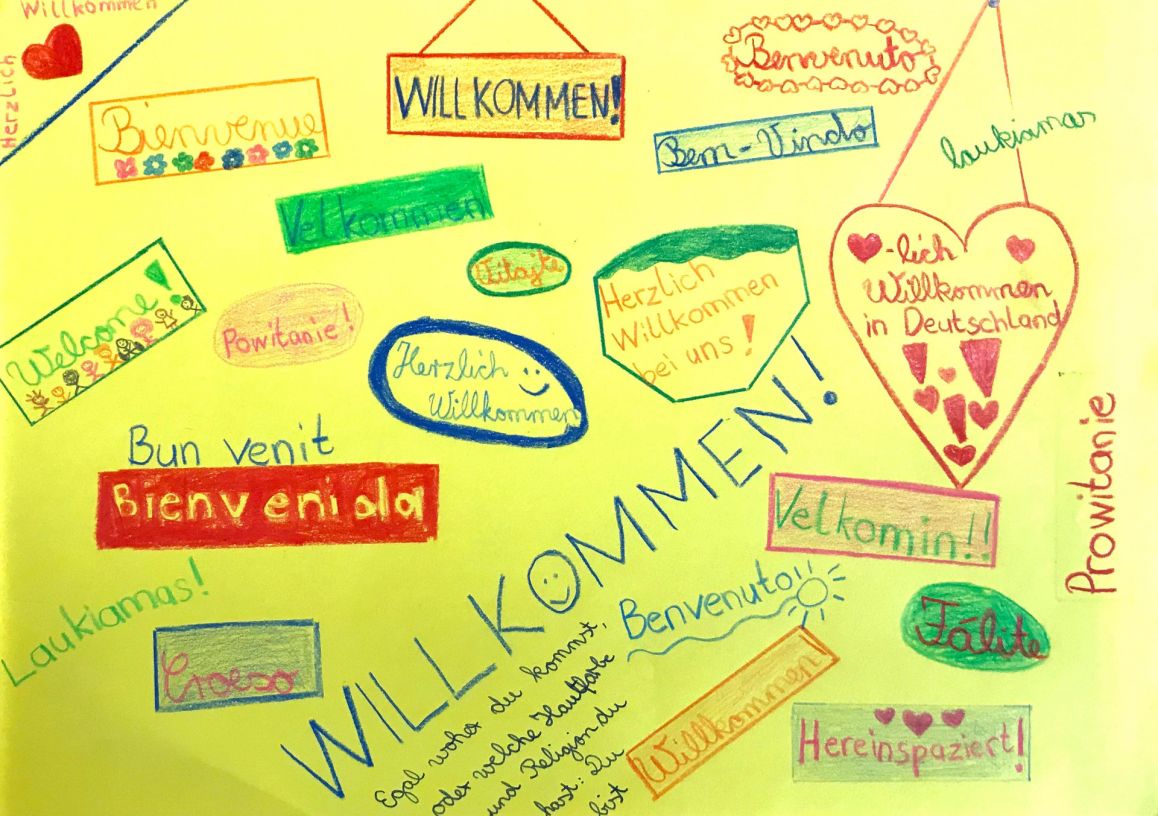 Willkommen
Herzlich
Bienvenue
WILLKOMMEN!
Benvenuto
Bem-Vindo
laukiamas
Velkommen
Vitajte
Welcome!
Powitanie!
Herzlich
Willkommen
Herzlich
Willkommen
bei uns!
-lich
Willkommen
in Deutschland
Prowitanie
Bun venit
Bienvenida
WILLKOMMEN!
Velkomin!!
Laukiamas!
Croeso
Benvenuto!!
Fálite
Egal woher du kommst,
oder welche Hautfarbe
und Religion du
hast: Du
bist
Willkommen!
Hereinspaziert!